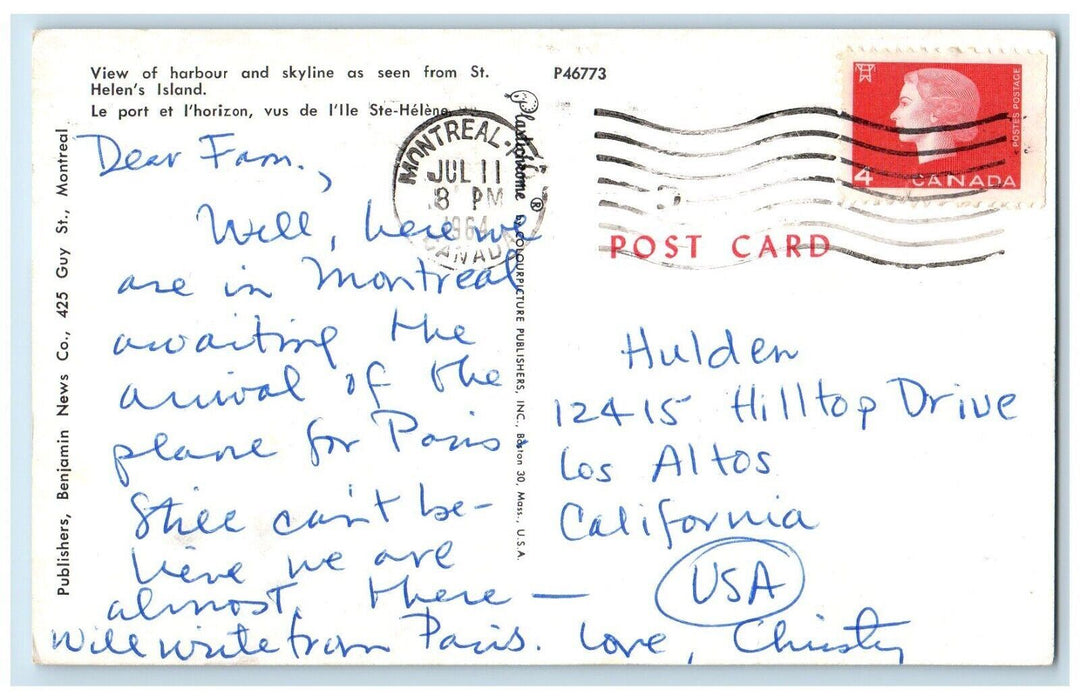 View of harbour and skyline as seen from St.
Helen's Island.
Le port et l'horizon, vus de l'Ile Ste-Hélène.
P46773
Publishers, Benjamin News Co., 425 Guy St., Montreal
Plastichrome ® by COLOURPICTURE PUBLISHERS, INC., Boston 30, Mass., U.S.A.
MONTREAL
JUL 11
8 PM
1964
CANADA
POSTES POSTAGE
4 CANADA
POST CARD
Dear Fam.,
Well, here we
are in Montreal
awaiting the
arrival of the
plane for Paris
Still can't be-
lieve we are
almost there —
Will write from Paris. Love, Christy
Hulden
12415 Hilltop Drive
Los Altos
California
USA